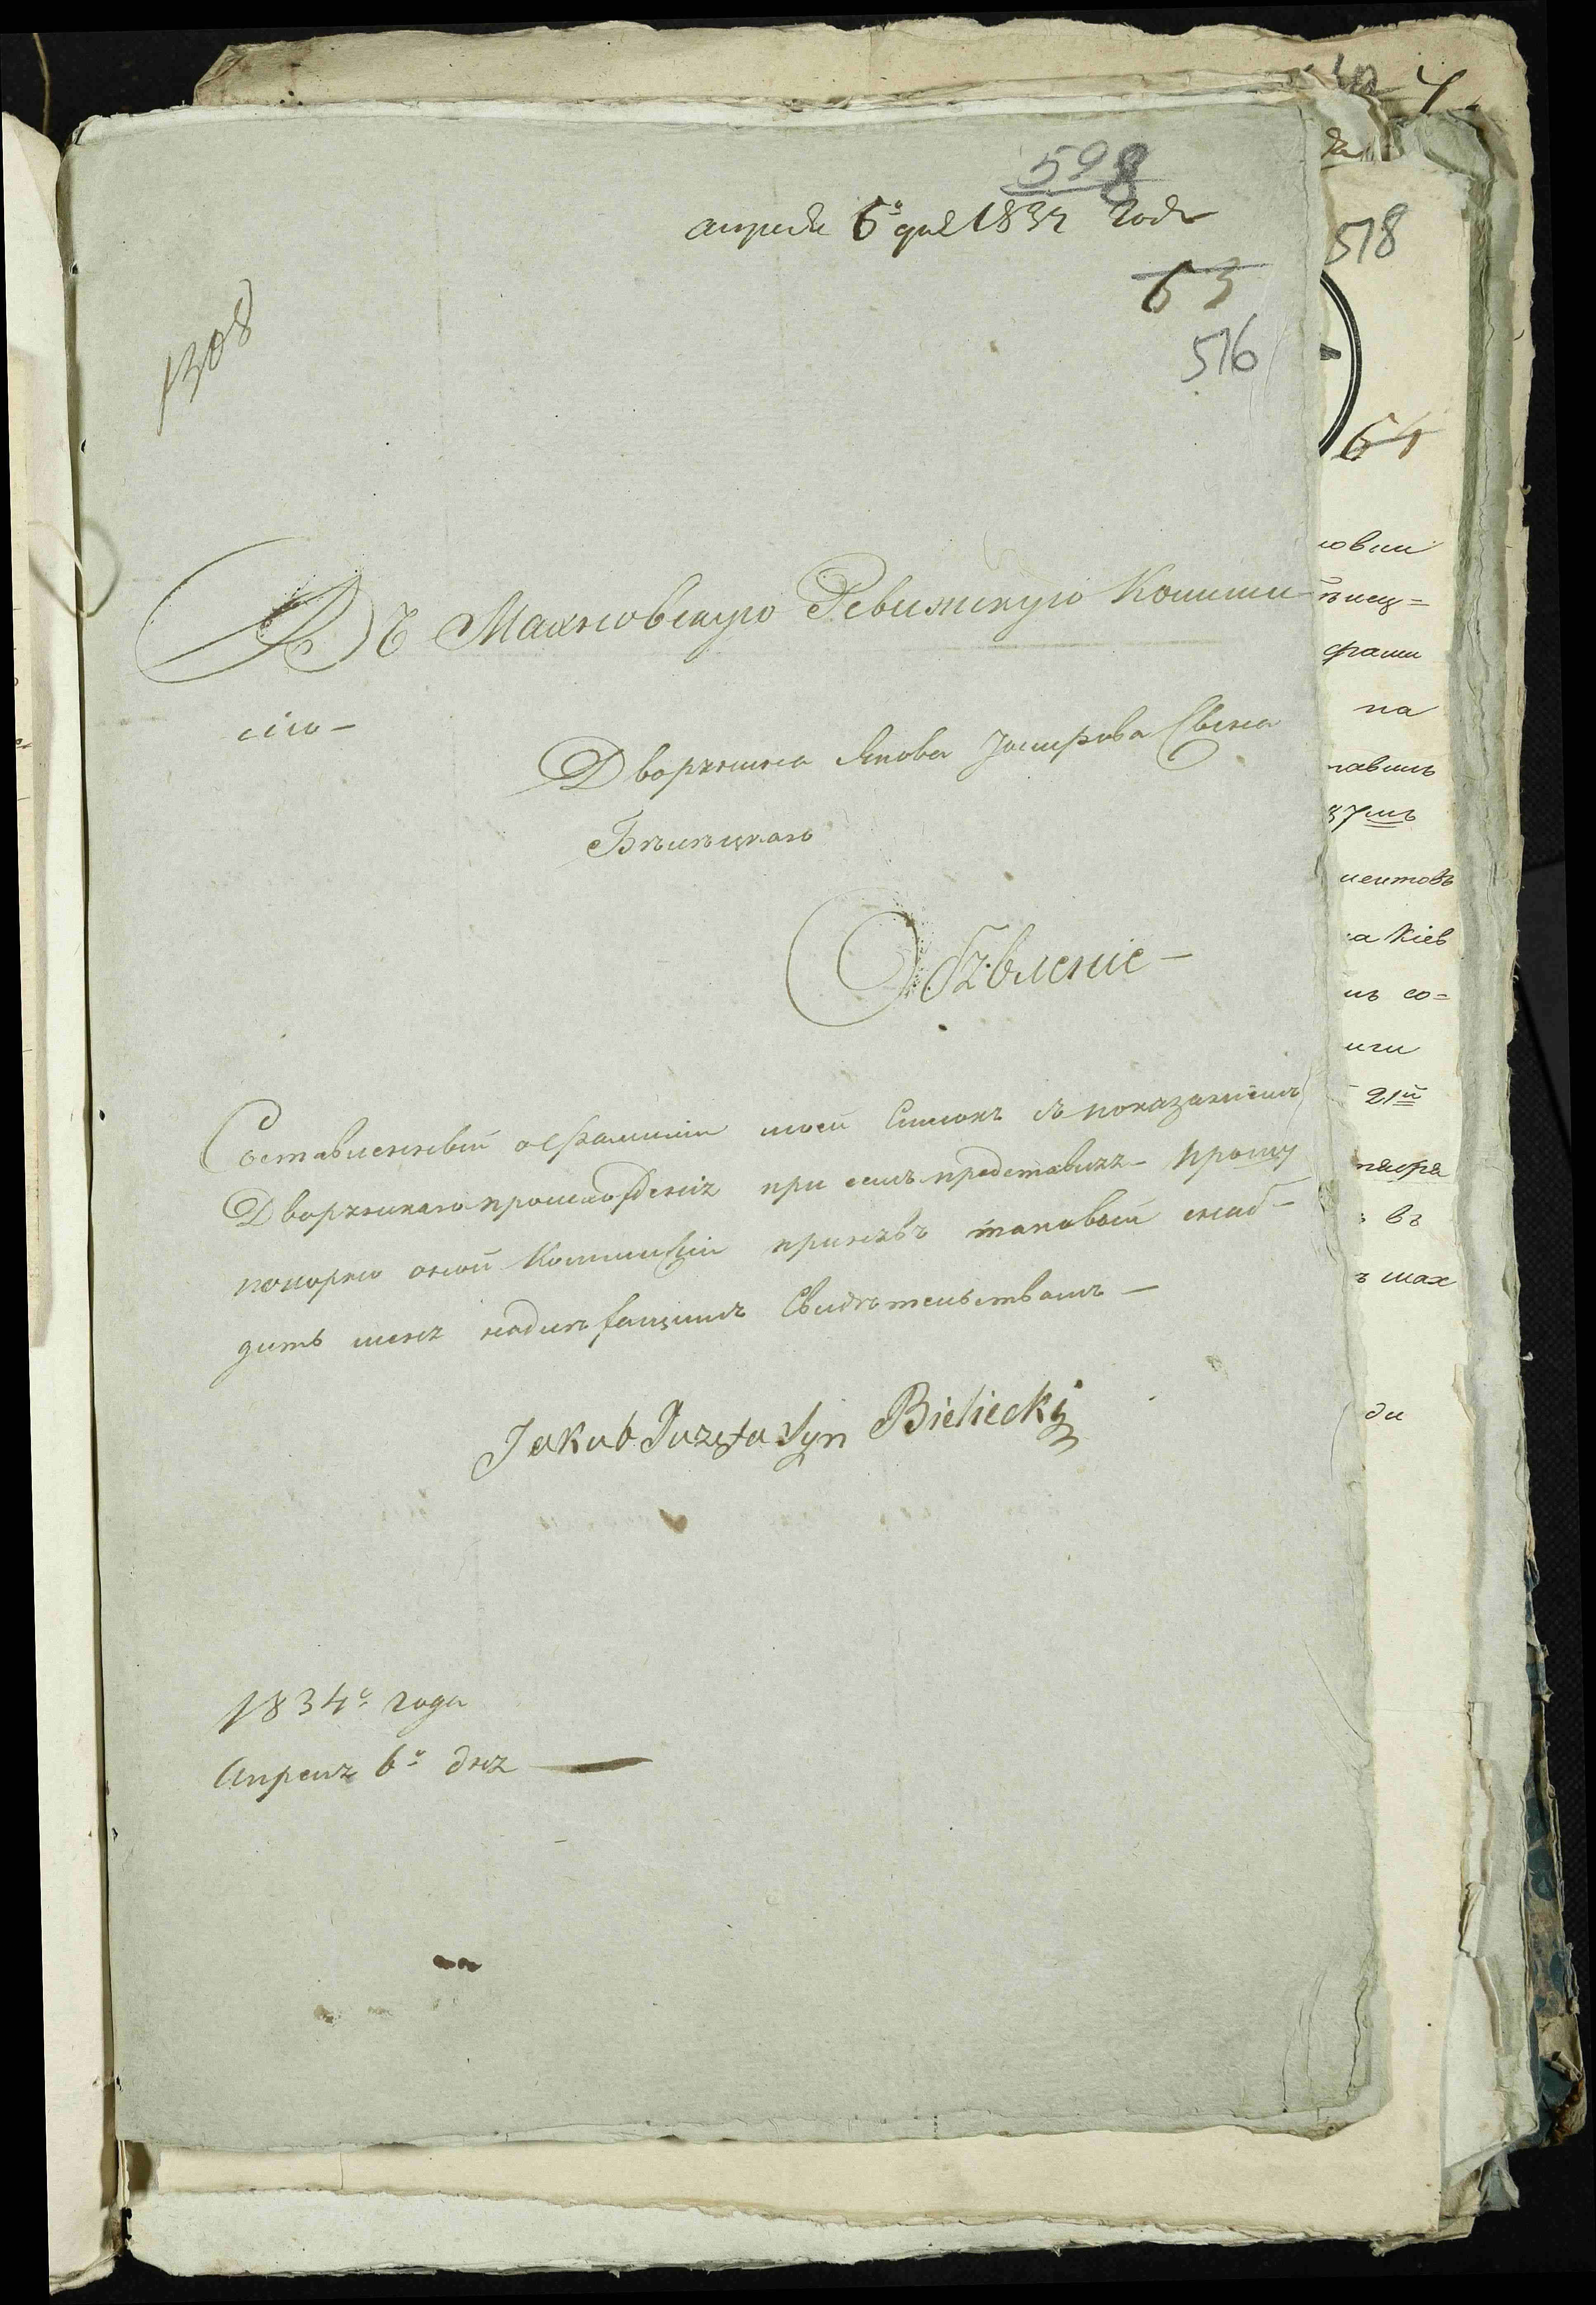 598
апреля 6º дня 1834 года
53
516
1308
Въ Махновскую Ревизскую Комми-
сію-
Дворянина Якова Іосифова Сына
Бѣлѣцкаго
Обявленіе-
Составленный о фамиліи моей Списокъ съ показаніемъ
Дворянскаго происхожденія при семъ представляя прошу
покорно оной Коммисіи принявъ таковой снаб-
дить меня надлежащимъ Свидѣтельствомъ-
Jakub Juzefa Syn Bieliecki
1834º года
Апреля 6º дня
518
64
овии
фами
на
ментовъ
а Кіев
мъ со=
21й
въ
ъ мах